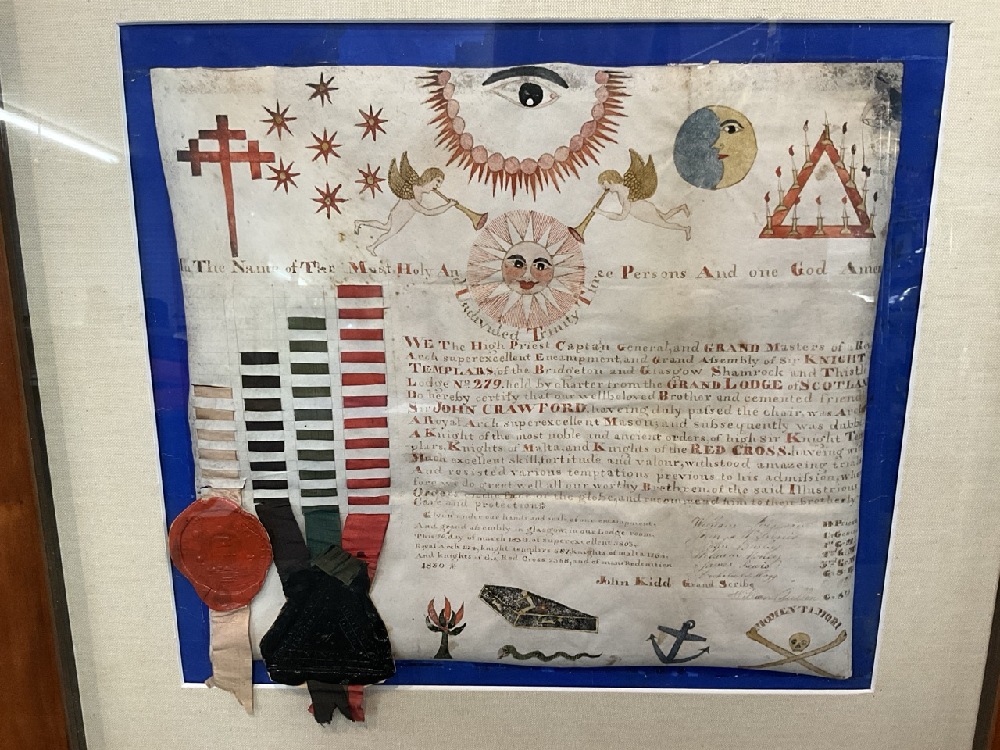 In The Name of The Most Holy An
undivided Trinity Three Persons And one God Amen
WE The High Priest Captain General, and GRAND Masters of a Ro
Arch superexcellent Encampment, and Grand Assembly of Sir KNIGHT
TEMPLARS, of the Bridgeton and Glasgow Shamrock and Thistle
Lodge No 279. held by charter from the GRAND LODGE of SCOTLAN
Do hereby certify that our wellbeloved Brother and cemented friend
Sir JOHN CRAWFORD, having duly passed the chair, was Arch
A Royal Arch superexcellent Mason; and subsequently was dubb
A Knight of the most noble and ancient orders, of high sir Knight Te
plars, Knights of Malta, and Knights of the RED CROSS. having wi
Much excellent skill, fortitude and valour, withstood amazeing tria
And resisted various temptations previous to his admission, wh
fore we do greet well all our worthy Brethren of the said Illustriou
Orders the face of the globe, and recommend him to their brotherly
Care and protection
Given under our hands and seals of our encampment,
And grand assembly in Glasgow in our Lodge room
This day of march
knights templars knights of malta
And knights of the Red Cross and of mans Redemption
John Kidd Grand Scribe
MOMENTA MORI